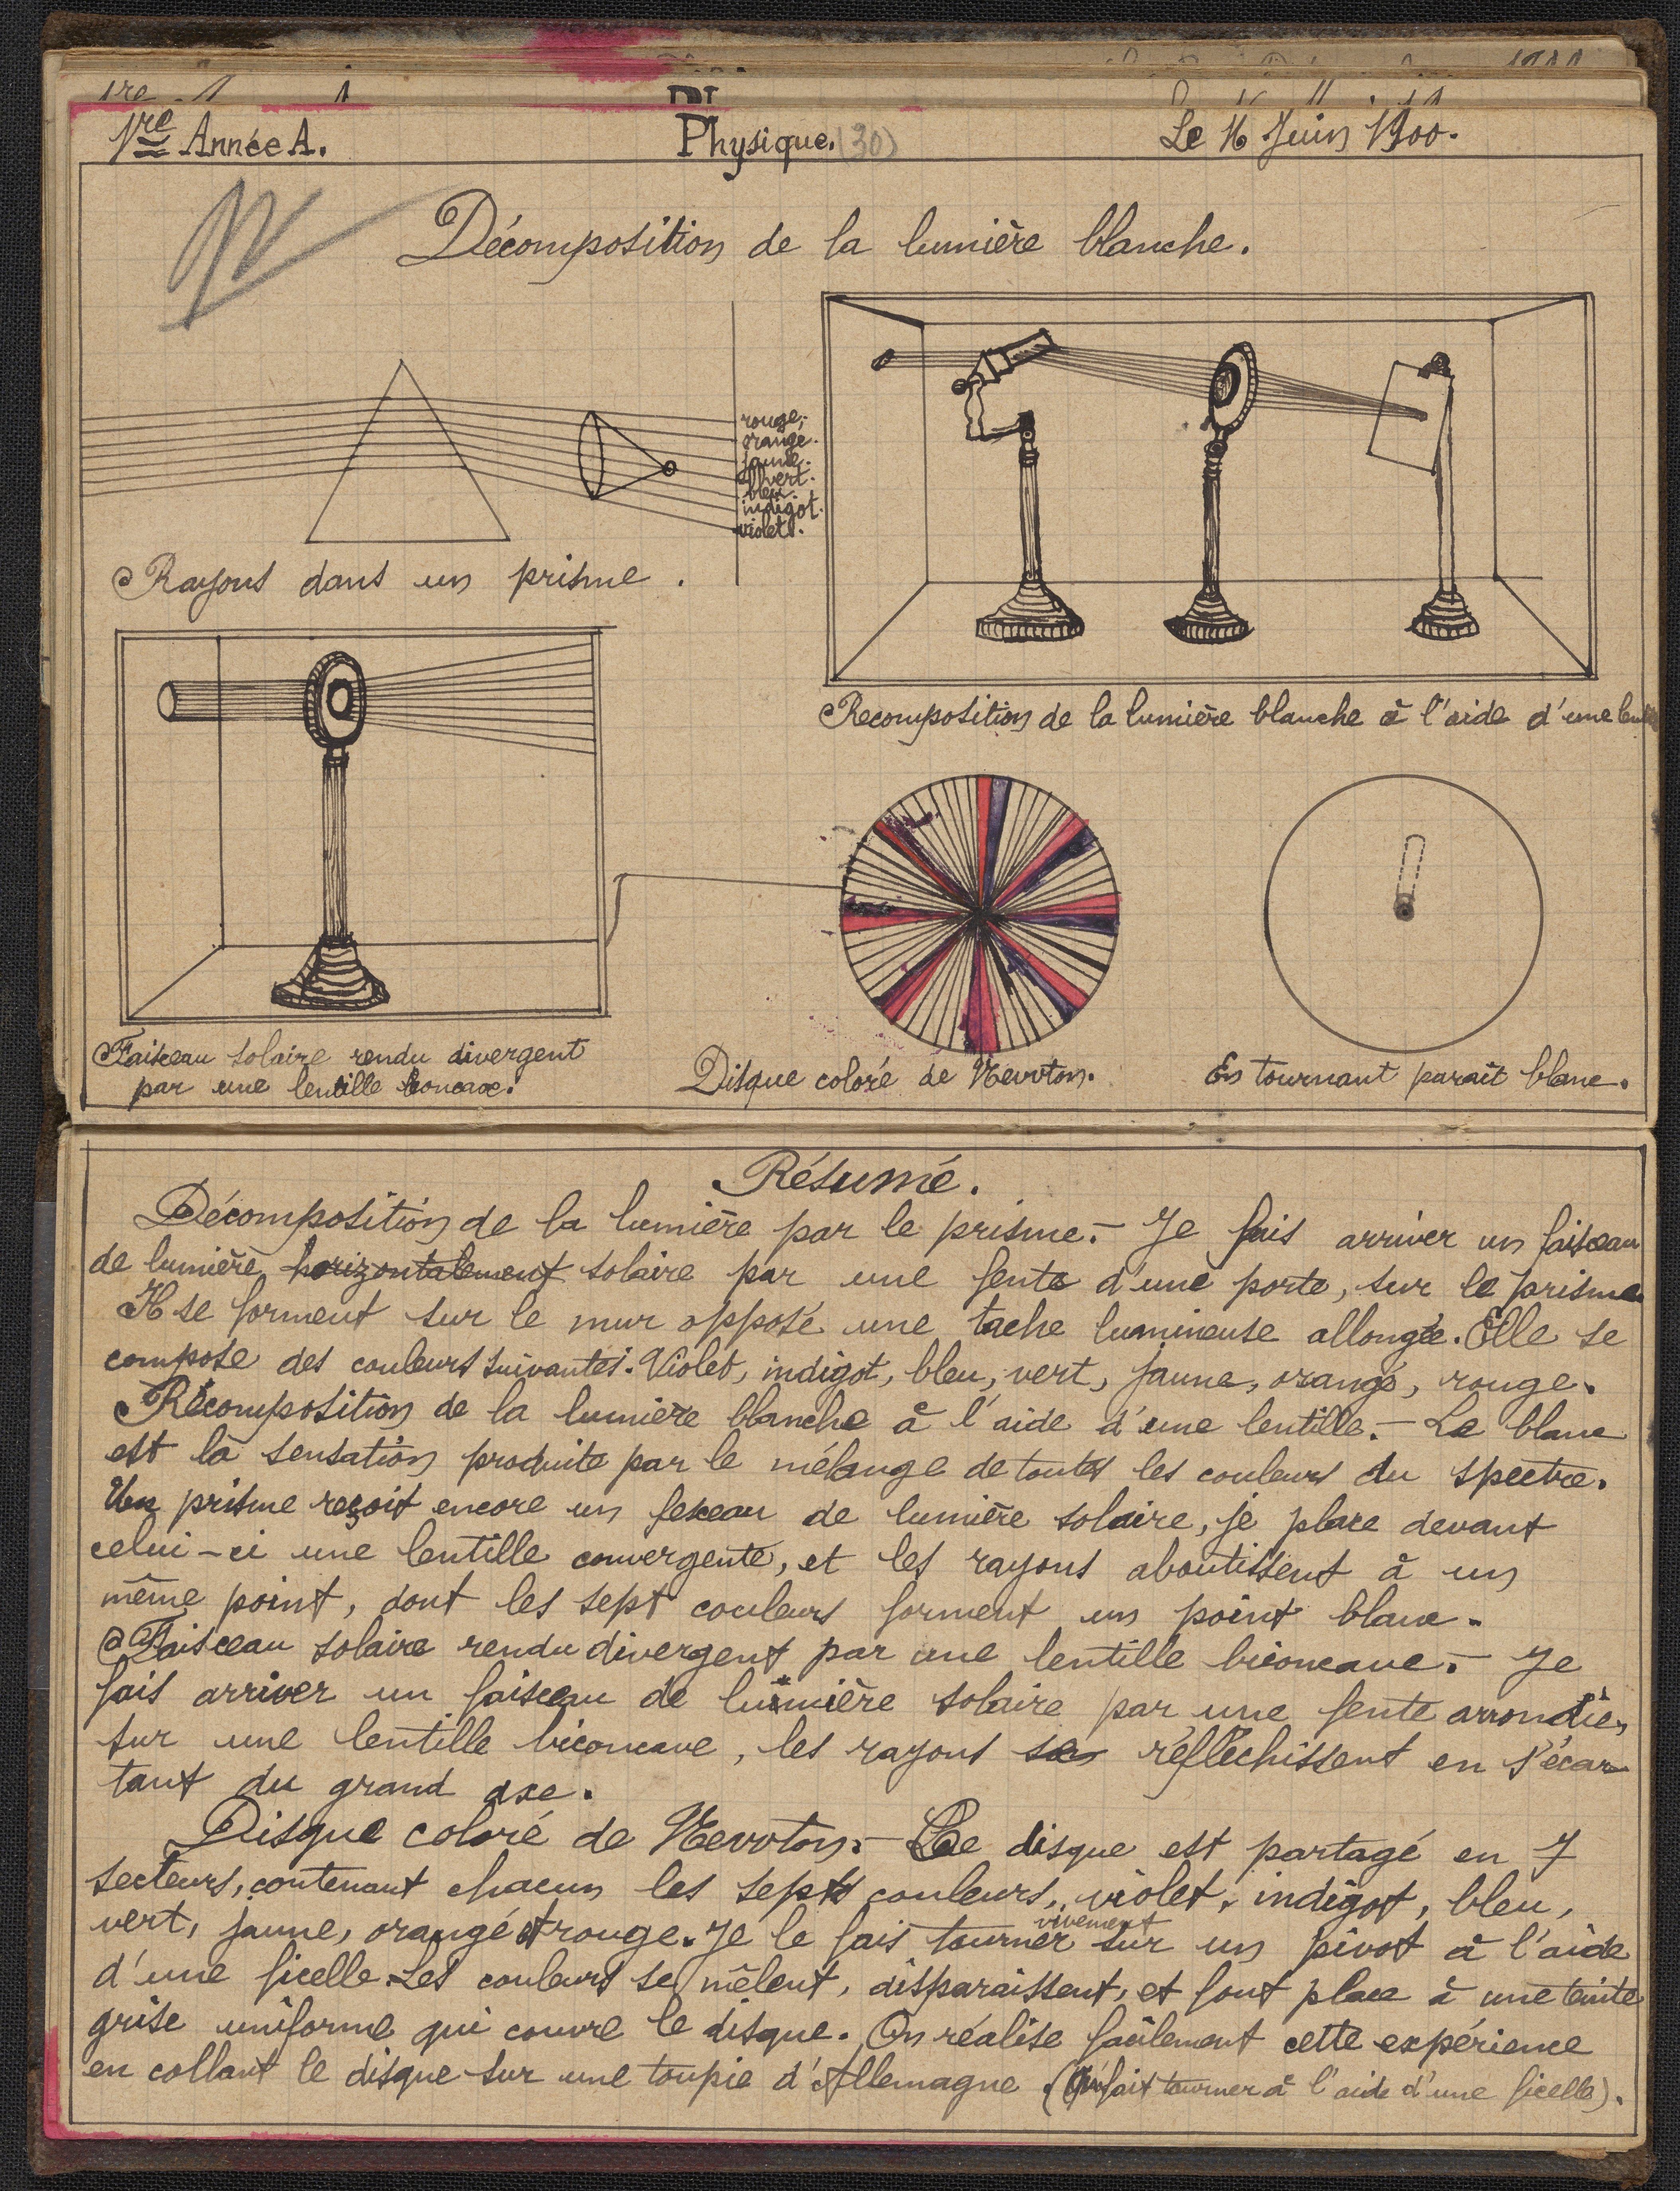 1re Année A.
Physique. (30)
Le 16 Juin 1900.
Décomposition de la lumière blanche.
rouge.
orangé.
jaune.
vert.
bleu.
indigot.
violet.
Rayons dans un prisme.
Recomposition de la lumière blanche à l'aide d'une
Faisceau solaire rendu divergent
par une lentille biconcave.
Disque coloré de Newton.
En tournant paraît blanc.
Résumé.
Décomposition de la lumière par le prisme.- Je fais arriver un faisceau
de lumière horizontalement solaire par une fente d'une porte, sur le prisme
Il se forment sur le mur opposé une tache lumineuse allongée. Elle se
compose des couleurs suivantes. Violet, indigot, bleu, vert, jaune, orangé, rouge.
Récomposition de la lumière blanche à l'aide d'une lentille.- Le blanc
est la sensation produite par le mélange de toutes les couleurs du spectre.
Un prisme reçoit encore un feseau de lumière solaire, je place devant
celui-ci une lentille convergente, et les rayons aboutissent à un
même point, dont les sept couleurs forment un point blanc.
Faisceau solaire rendu divergent par une lentille biconcave.- Je
fais arriver un faisceau de lumière solaire par une fente arrondie,
sur une lentille biconcave, les rayons se réfléchissent en s'écar-
tant du grand axe.
Disque coloré de Newton.- Le disque est partagé en 7
secteurs, contenant chacun les sept couleurs, violet, indigot, bleu,
vert, jaune, orangé et rouge. Je le fais tourner vivement sur un pivot à l'aide
d'une ficelle. Les couleurs se mêlent, disparaissent, et font place à une teinte
grise uniforme qui couvre le disque. On réalise facilement cette expérience
en collant le disque sur une toupie d'Allemagne. (Qu'fait tourner à l'aide d'une ficelle).